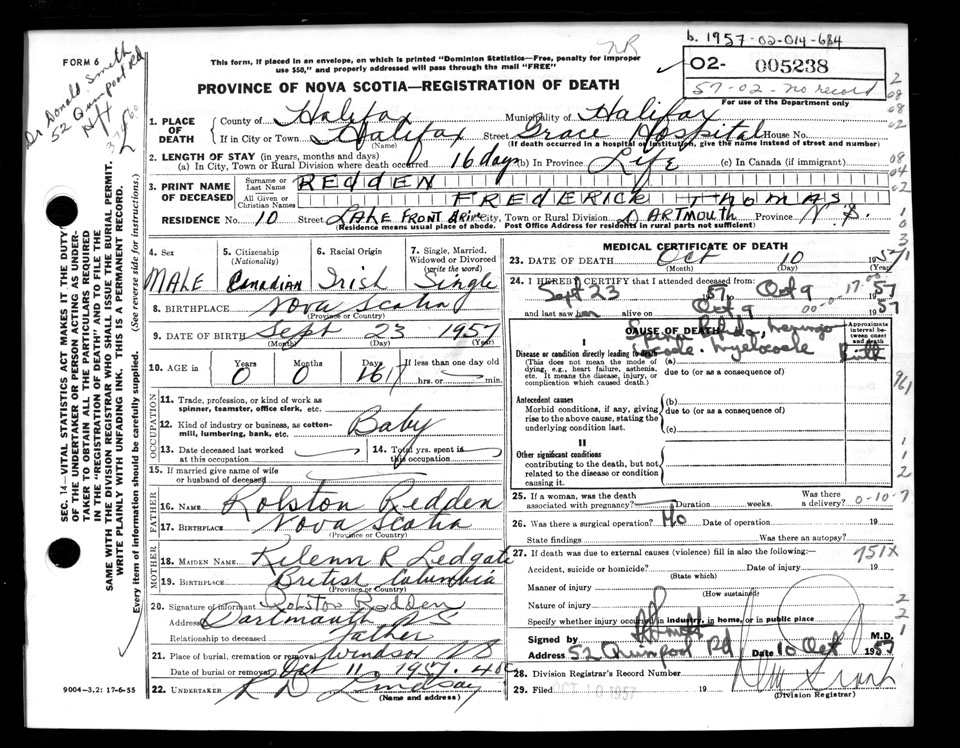 FORM 6
Dr Donald Smith
52 Quinpool Rd
Hfx
NR
This form, if placed in an envelope, on which is printed "Dominion Statistics—Free, penalty for improper
use $50," and properly addressed will pass through the mail "FREE"
b. 1957-02-014-684
02- 005238
57-02-no record
For use of the Department only
PROVINCE OF NOVA SCOTIA—REGISTRATION OF DEATH
1. PLACE OF DEATH
County of Halifax Municipality of Halifax
If in City or Town Halifax Street Grace Hospital House No.
(Name) (If death occurred in a hospital or institution, give the name instead of street and number)
2. LENGTH OF STAY (in years, months and days)
(a) In City, Town or Rural Division where death occurred 16 days (b) In Province Life (c) In Canada (if immigrant)
3. PRINT NAME OF DECEASED
Surname or Last Name REDDEN
All Given or Christian Names FREDERICK THOMAS
RESIDENCE No. 10 Street LAKE FRONT DRIVE City, Town or Rural Division DARTMOUTH Province N.S.
(Residence means usual place of abode. Post Office Address for residents in rural parts not sufficient)
4. Sex MALE
5. Citizenship (Nationality) Canadian
6. Racial Origin Irish
7. Single, Married, Widowed or Divorced (write the word) Single
8. BIRTHPLACE Nova Scotia
(Province or Country)
9. DATE OF BIRTH Sept 23 1957
(Month) (Day) (Year)
10. AGE in Years 0 Months 0 Days 17 If less than one day old
hrs. or min.
OCCUPATION
11. Trade, profession, or kind of work as
spinner, teamster, office clerk, etc.
12. Kind of industry or business, as cotton-
mill, lumbering, bank, etc. Baby
13. Date deceased last worked
at this occupation
14. Total yrs. spent in
this occupation
15. If married give name of wife
or husband of deceased
FATHER
16. NAME Rolston Redden
17. BIRTHPLACE Nova Scotia
(Province or Country)
MOTHER
18. MAIDEN NAME R Ledgate
19. BIRTHPLACE British Columbia
(Province or Country)
20. Signature of informant Rolston Redden
Address Dartmouth N S
Relationship to deceased Father
21. Place of burial, cremation or removal Windsor NS
Date of burial or removal Oct 11 1957
22. UNDERTAKER R D Lindsay
(Name and address)
9004-3.2: 17-6-55
MEDICAL CERTIFICATE OF DEATH
23. DATE OF DEATH Oct 10 1957
(Month) (Day) (Year)
24. I HEREBY CERTIFY that I attended deceased from:
Sept 23 1957 to Oct 9 1957
and last saw him alive on Oct 9 1957
00-0-17-00
CAUSE OF DEATH
Approximate interval between onset and death
I
Disease or condition directly leading to death
(This does not mean the mode of
dying, e.g., heart failure, asthenia,
etc. It means the disease, injury, or
complication which caused death.)
Spina Bifida, Meningo
cele. Myelocoele
Birth
due to (or as a consequence of)
Antecedent causes
Morbid conditions, if any, giving
rise to the above cause, stating the
underlying condition last.
(b)
due to (or as a consequence of)
(c)
II
Other significant conditions
contributing to the death, but not
related to the disease or condition
causing it.
25. If a woman, was the death
associated with pregnancy? Duration weeks. Was there
a delivery?
0-10-7
26. Was there a surgical operation? No Date of operation 19
State findings Was there an autopsy?
27. If death was due to external causes (violence) fill in also the following:—
751X
Accident, suicide or homicide? Date of injury 19
(State which)
Manner of injury
(How sustained)
Nature of injury
Specify whether injury occurred in industry, in home, or in public place
Signed by M.D.
Address 52 Quinpool Rd Date 10 Oct 1957
28. Division Registrar's Record Number
29. Filed OCT 10 1957 19
(Division Registrar)
SEC. 14—VITAL STATISTICS ACT MAKES IT THE DUTY
OF THE UNDERTAKER OR PERSON ACTING AS UNDER-
TAKER TO OBTAIN ALL THE PARTICULARS REQUIRED
IN THE "REGISTRATION OF DEATH" AND TO FILE THE
SAME WITH THE DIVISION REGISTRAR WHO SHALL ISSUE THE BURIAL PERMIT.
WRITE PLAINLY WITH UNFADING INK. THIS IS A PERMANENT RECORD.
Every item of information should be carefully supplied. (See reverse side for instructions.)